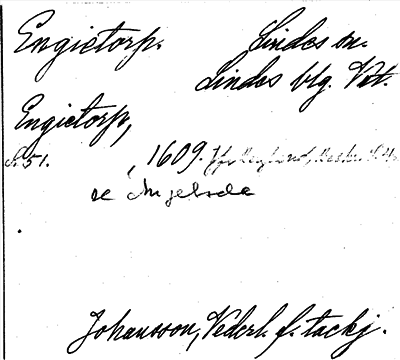 Engietorp. Lindes sn.
Lindes blg. Vst.
Engietorp,
s. 51. , 1609.
se Ängelsde
Johansson, Nederl. f. tackj.